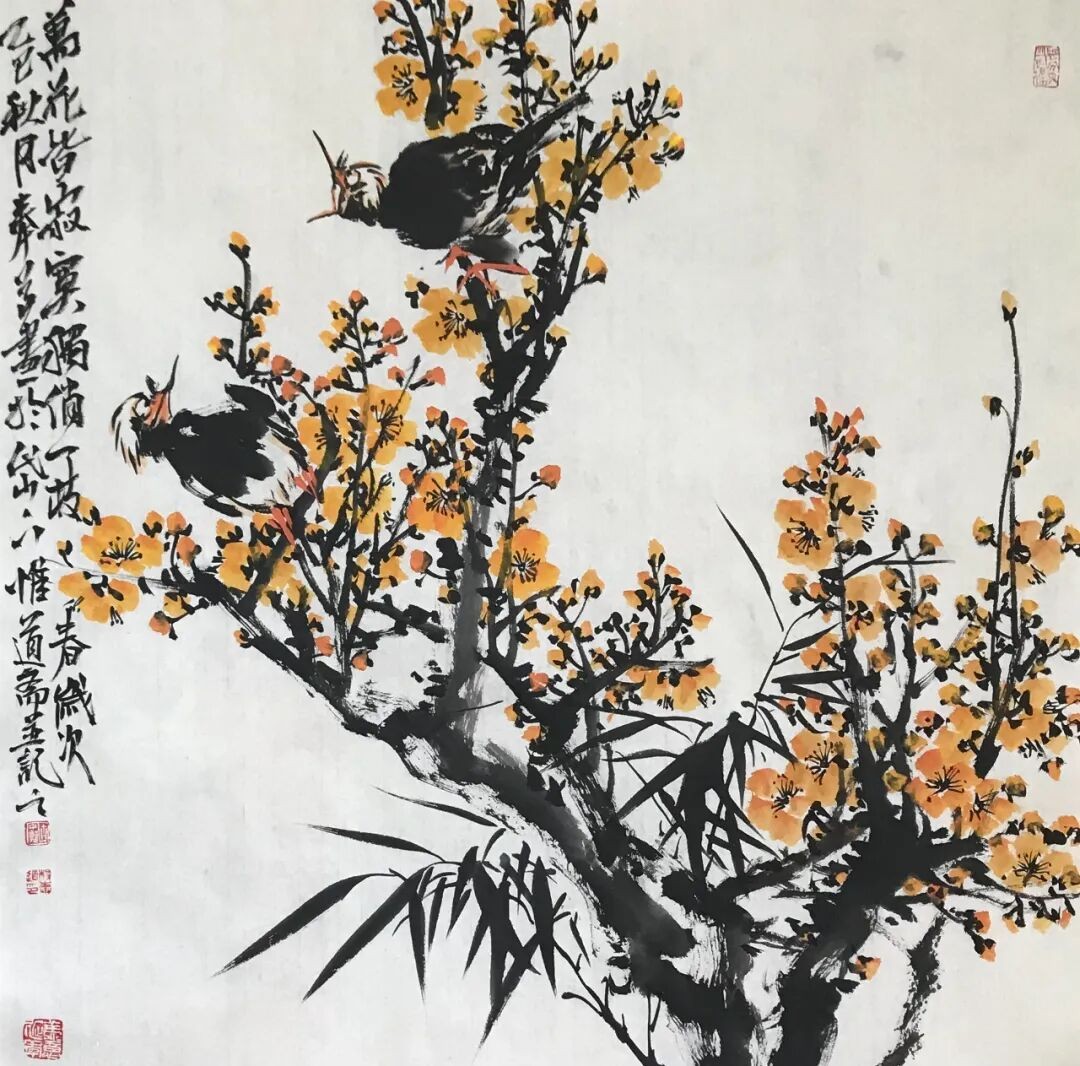 萬花皆寂寞獨俏一枝春歲次
乙巳秋月奉畫於岱下惟道齋並記之